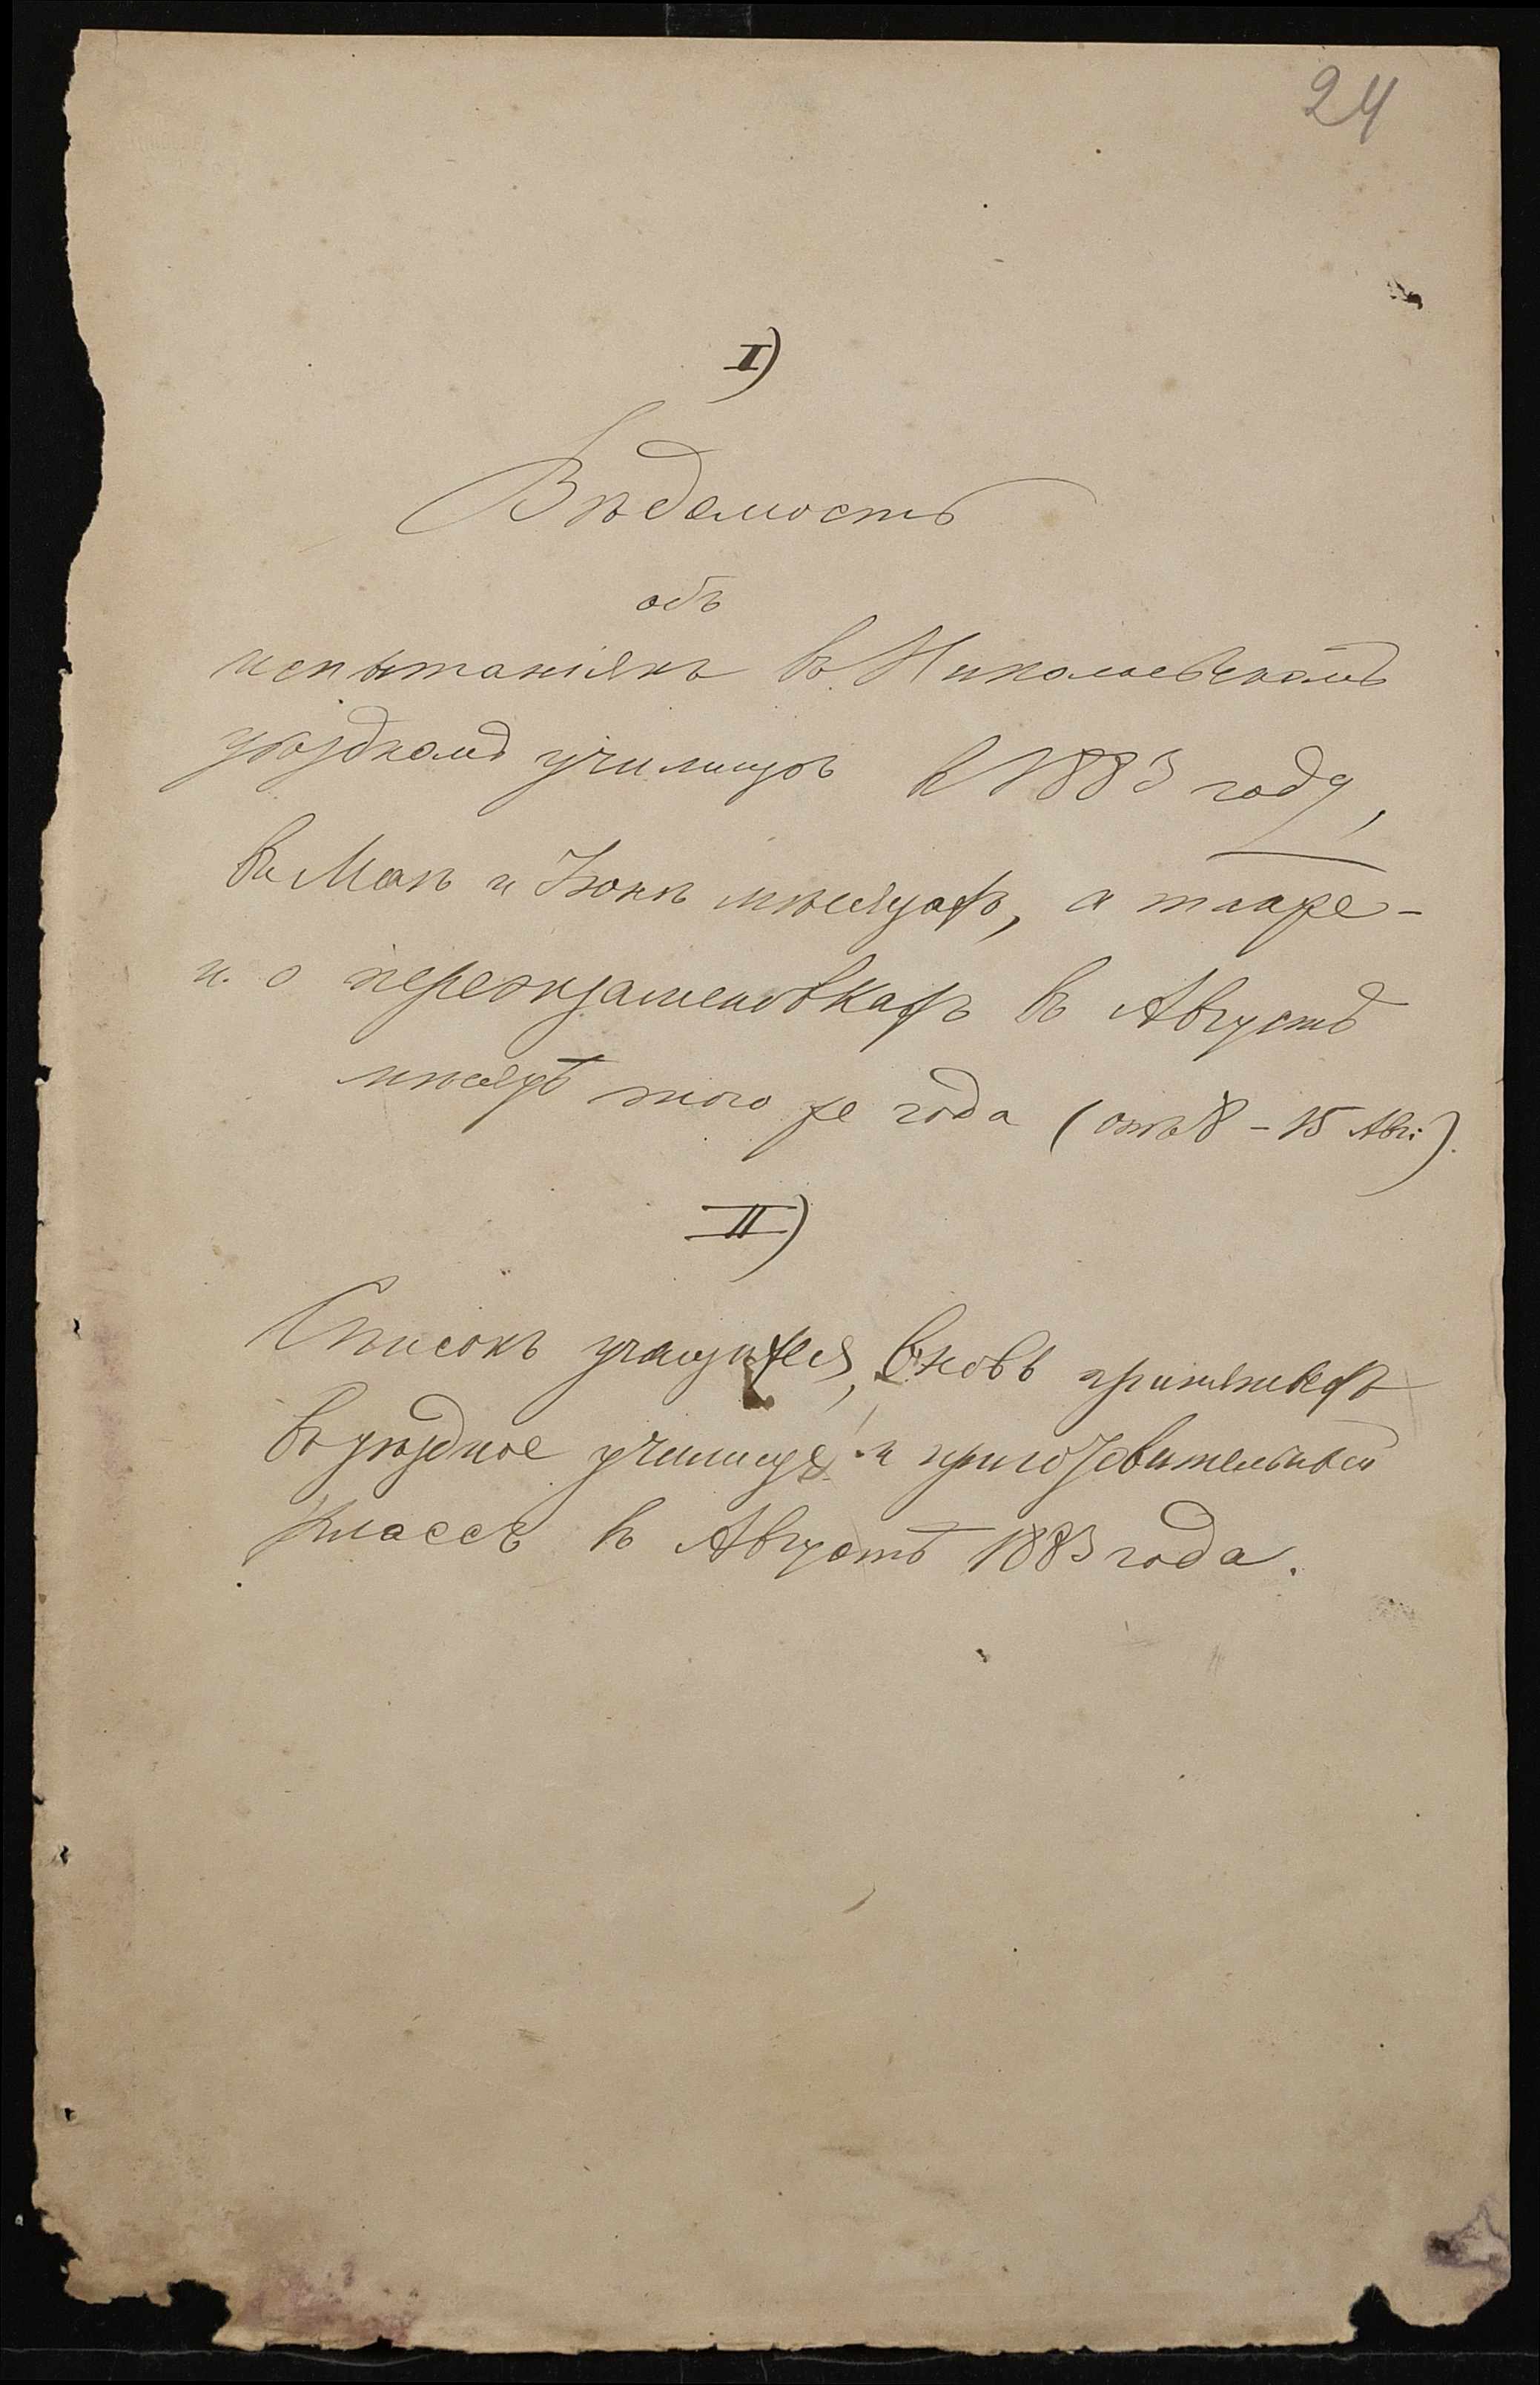 24
I)
Вѣдомость
объ
испытаніяхъ въ Николаевскомъ
уѣздномъ училищѣ въ 1883 году,
въ Маѣ и Іюнѣ мѣсяцахъ, а также-
и о переэкзаменовкахъ въ Августѣ
мѣсяцѣ того же года (отъ 8 - 15 Авг:).
II)
Списокъ учащихся, вновь принятыхъ
въ уѣздное училище и приготовительный
классъ въ Августѣ 1883 года.